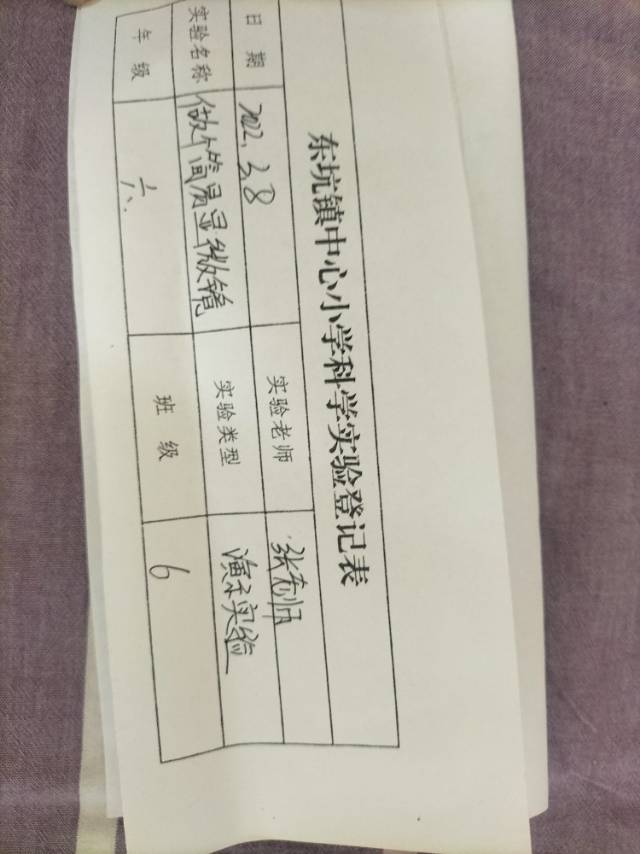 东坑镇中心小学科学实验登记表
日 期 2022.3.8 实验老师 张老师
实验名称 做个简易显微镜 实验类型 演示实验
年 级 六. 班 级 6